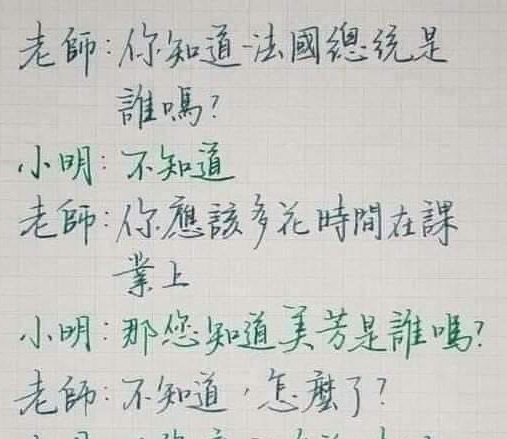 老師:你知道法國總統是
誰嗎?
小明:不知道
老師:你應該多花時間在課
業上
小明:那您知道美芳是誰嗎?
老師:不知道,怎麼了?